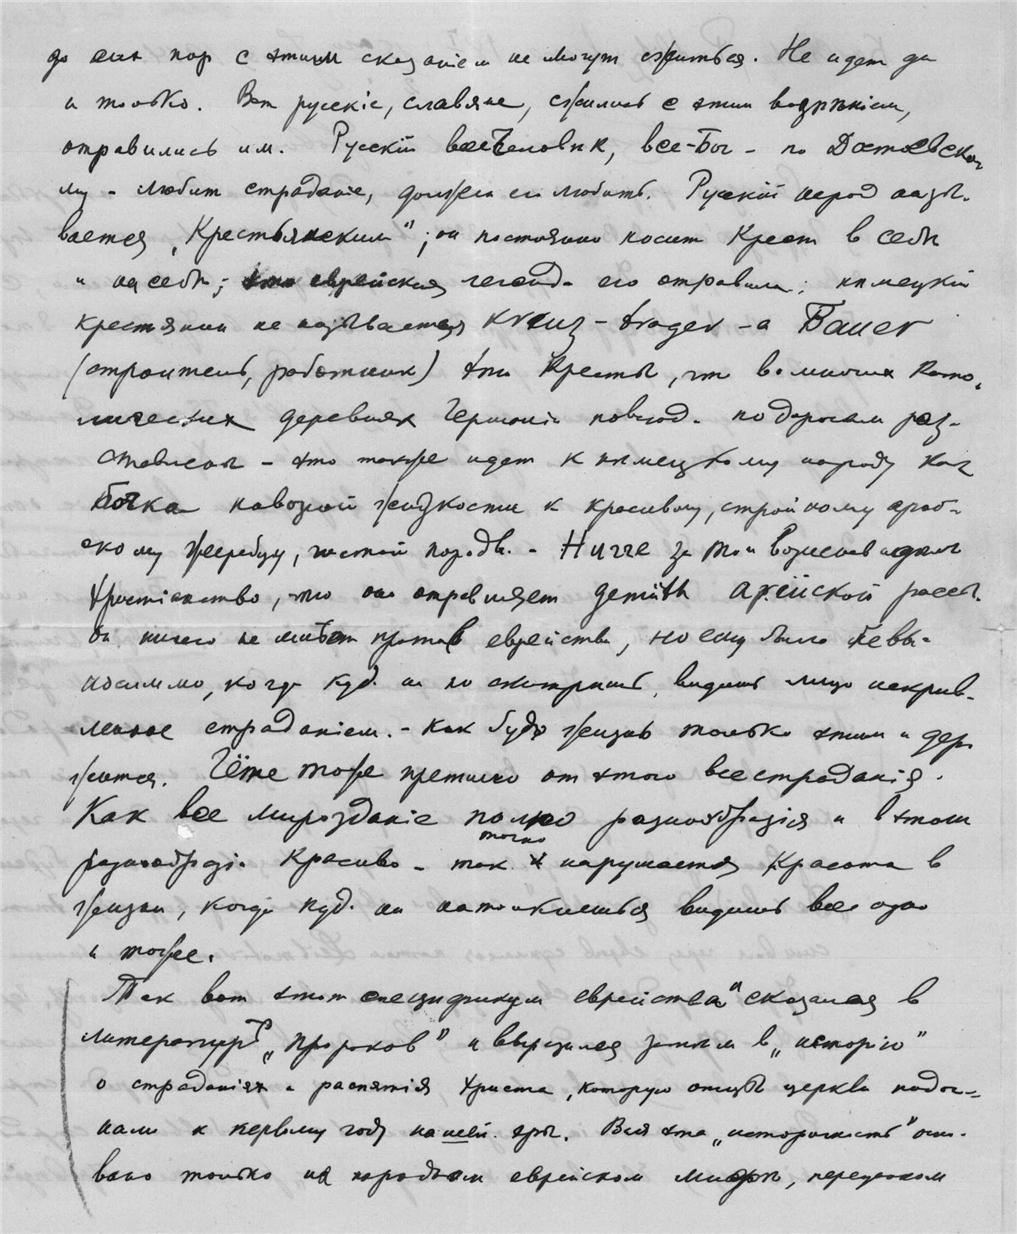 до сих пор с этим сказаніем не могут сжиться. Не идет да
и только. Вот русскіе, славяне, сжились с этим воззрѣніем,
отравились им. Русскій всечеловѣк, все-Бог - по Достоевско
му - любит страданіе, должен его любить. Русскій народ назы-
вается „Крестьянским"; он постоянно носит Крест в себѣ
и на себѣ; это еврейская легенда его отравила; нѣмецкій
крестьянин не называется Kreuz-träger - а Bauer
(строитель, работник) Эти кресты, что во многих като-
лических деревнях Германіи повсюду по дорогам раз-
ставлены - это также идет к нѣмецкому народу как
бочка навозной жидкости к красивому, стройному араб-
скому жеребцу, чистой породы. - Ницше за то и возненавидѣл
Христіанство, что оно отравляет genuth арійской рассы.
Он ничего не имѣет против еврейства, но ему было невы-
носимо, когда куда ни по смотришь, видишь лицо искрив-
ленное страданіем. - Как будто жизнь только этим и дер-
жится. Гёте тоже претило от этого всестраданія.
Как все мирозданіе полно разнообразія и в этом
разнообразіи красиво - так точно нарушается красота в
жизни, когда куда ни наткнешься видишь все одно
и тоже.
Так вот этот спецификум еврейства" сказался в
литературѣ „пророков" и выразился затѣм в „исторію"
о страданіях и распятія Христа, которую отцы церкви подог-
нали к первому году нашей эры. Вся эта „историчность" осно-
вана только на народном еврейском мифѣ, переданном